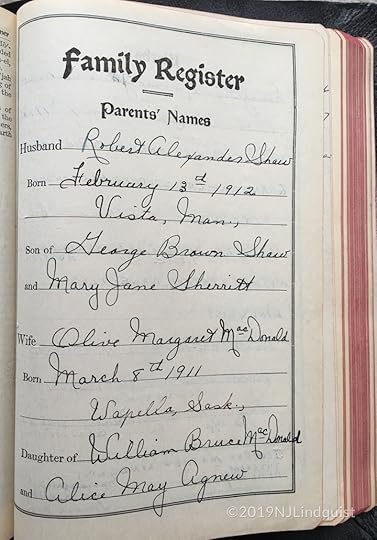 Family Register
Parents' Names
Husband Robert Alexander Shaw
Born February 13rd 1912
Vista, Man.,
Son of George Brown Shaw
and Mary Jane Sherritt
Wife Olive Margaret MacDonald
Born March 8th 1911
Wapella, Sask.,
Daughter of William Bruce MacDonald
and Alice May Agnew
©2019NJLindquist